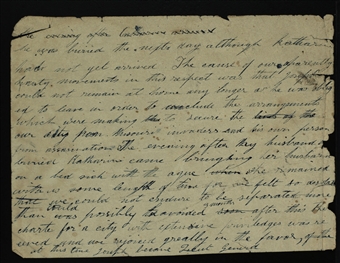 the evening after
He was buried the night day although Katharine
had not yet arrived. The cause of our apparently
hasty movements in this respect was that Joseph
could not remain at home any longer as he was oblig
ed to leave in order to conclude the arrangements
which were making to secure the
our Missouri invaders and his own person
from assassination. The evening after my husband's
burial Katharine came bringing her husband
on a bed sick with the ague when she remained
with us some length of time for we felt so
that we could not endure to be separated more
than was possibly to avoided soon after this the
charter for a city with extensive privileges was re
ceived and we rejoiced greatly in the favor of the
At this time Joseph became Lieut General